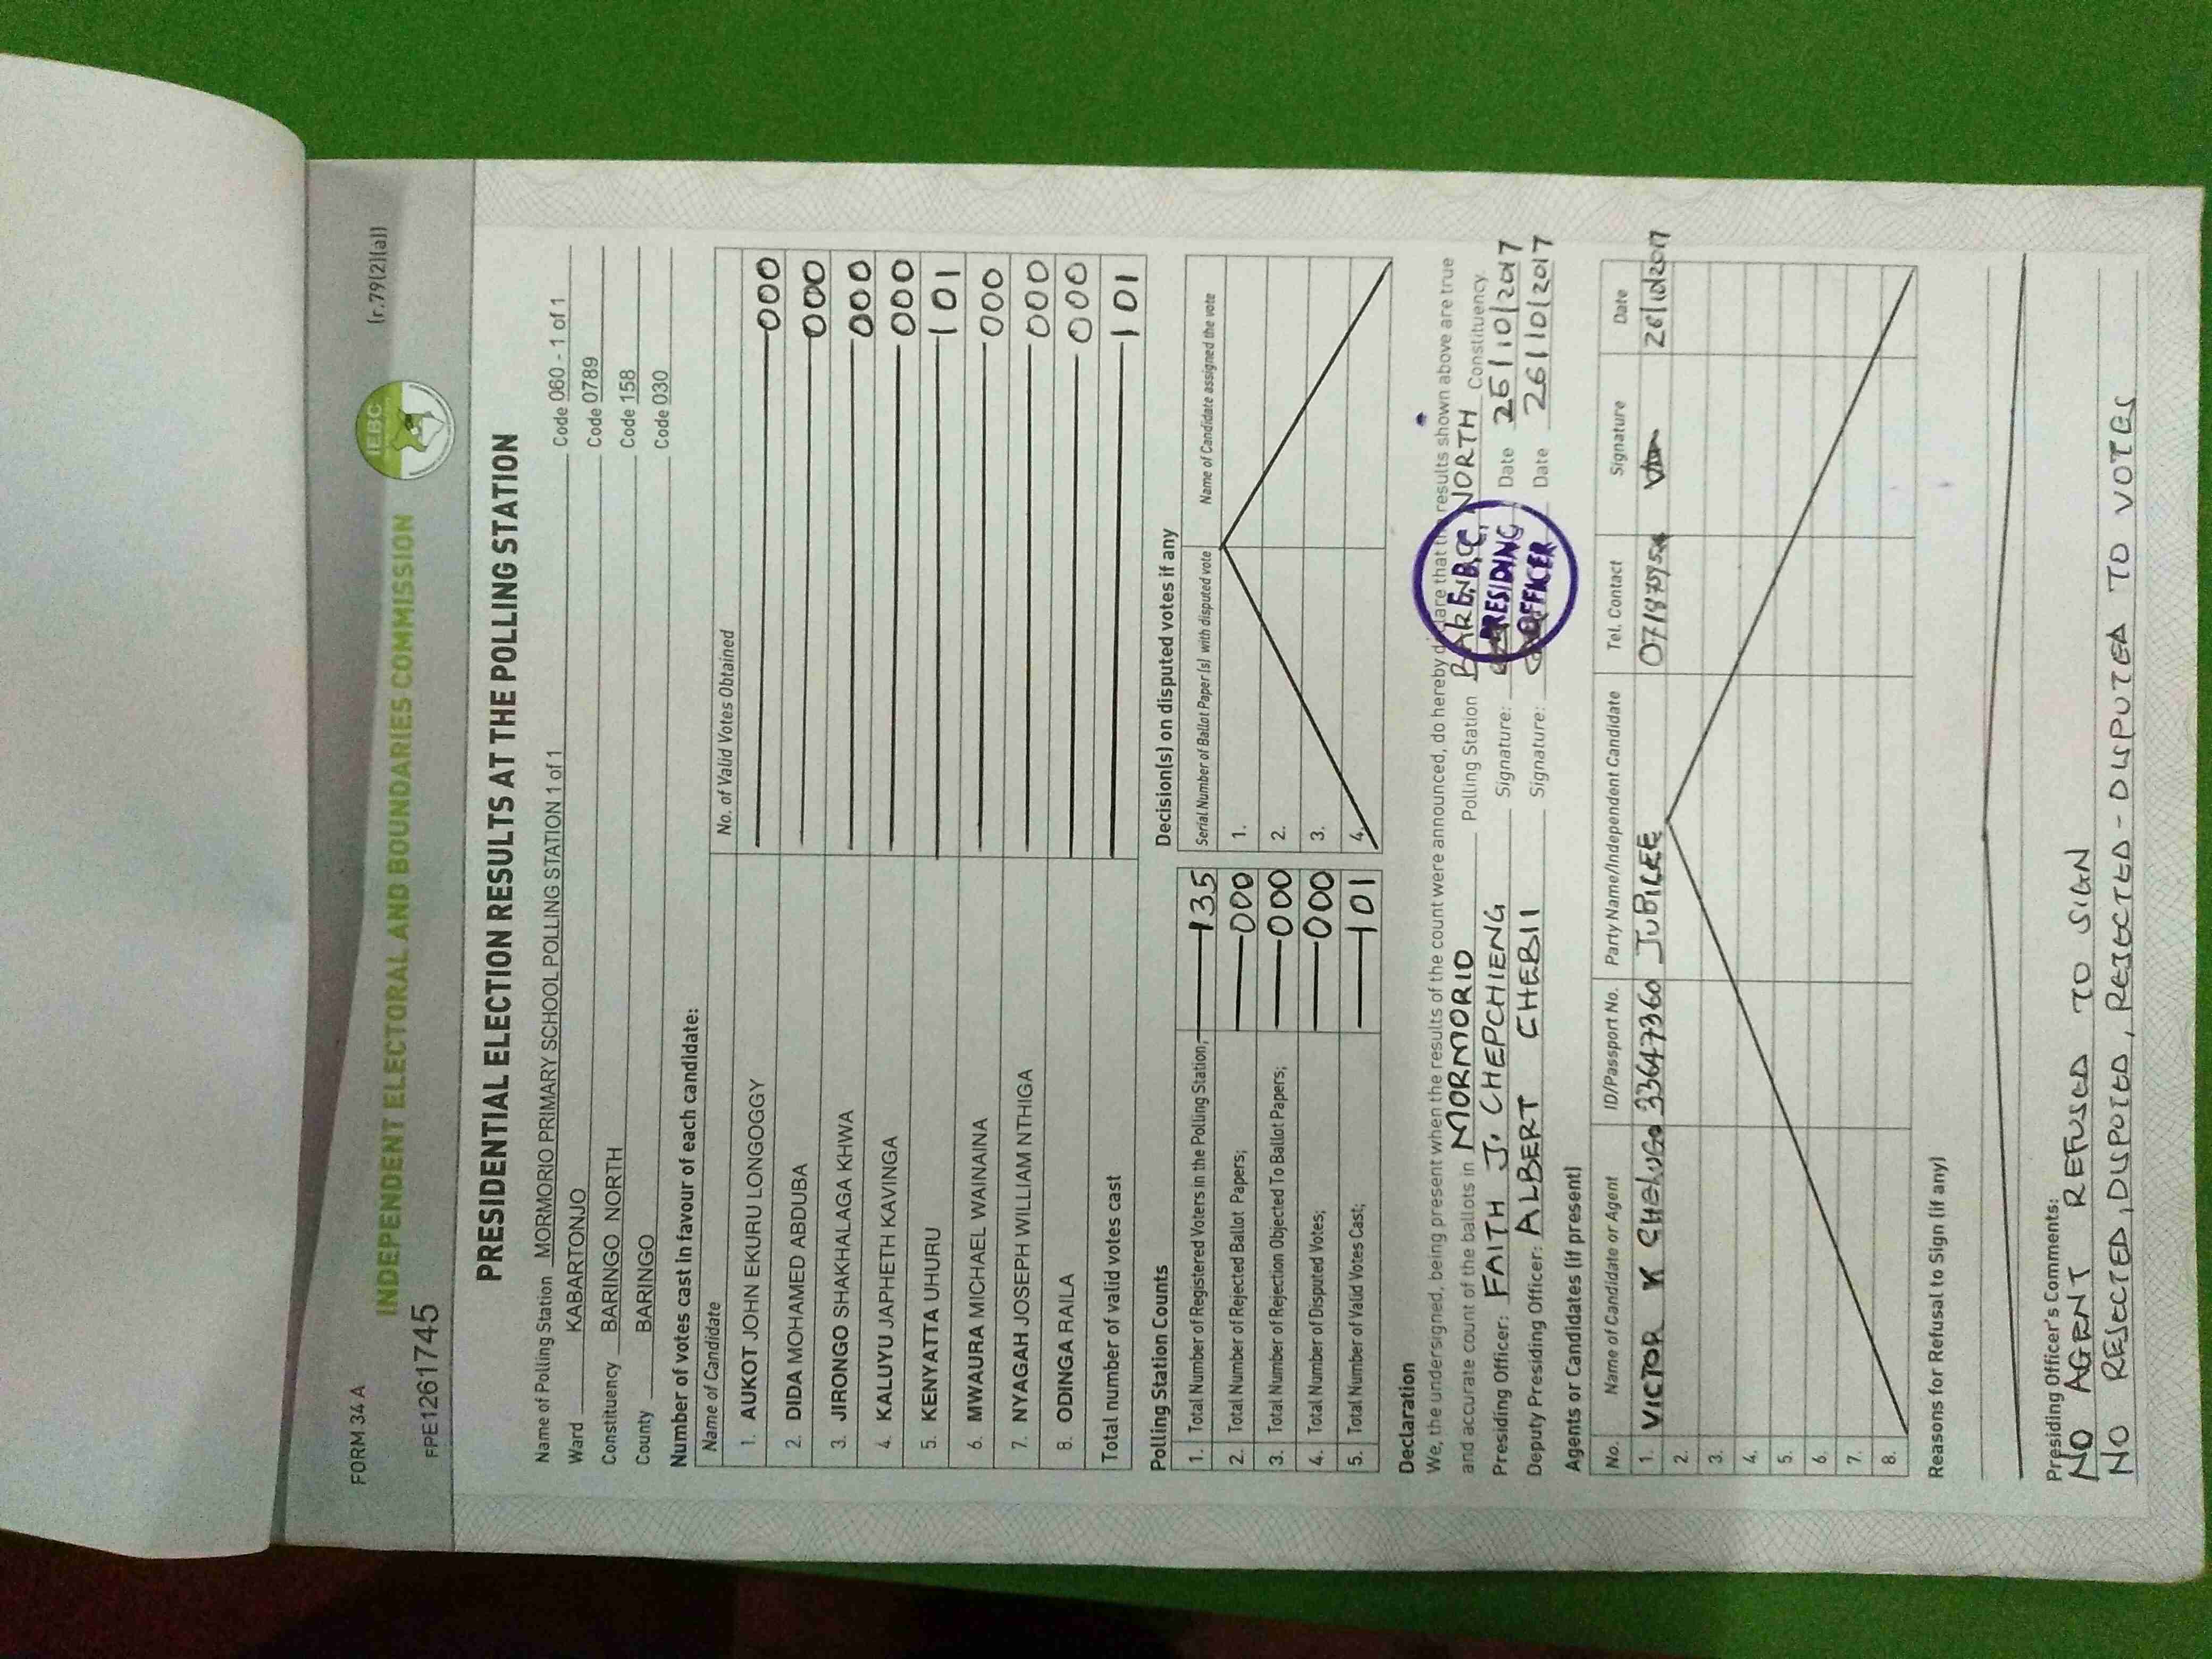 FORM 34 A
(r.79(2)(a))
INDEPENDENT ELECTORAL AND BOUNDARIES COMMISSION
IEBC
FPE1261745
PRESIDENTIAL ELECTION RESULTS AT THE POLLING STATION
Name of Polling Station MORMORIO PRIMARY SCHOOL POLLING STATION 1 of 1 Code 060 - 1 of 1
Ward KABARTONJO Code 0789
Constituency BARINGO NORTH Code 158
County BARINGO Code 030
Number of votes cast in favour of each candidate:
Name of Candidate No. of Valid Votes Obtained
1. AUKOT JOHN EKURU LONGOGGY 000
2. DIDA MOHAMED ABDUBA 000
3. JIRONGO SHAKHALAGA KHWA 000
4. KALUYU JAPHETH KAVINGA 000
5. KENYATTA UHURU 101
6. MWAURA MICHAEL WAINAINA 000
7. NYAGAH JOSEPH WILLIAM NTHIGA 000
8. ODINGA RAILA 000
Total number of valid votes cast 101
Polling Station Counts
1. Total Number of Registered Voters in the Polling Station; 135
2. Total Number of Rejected Ballot Papers; 000
3. Total Number of Rejection Objected To Ballot Papers; 000
4. Total Number of Disputed Votes; 000
5. Total Number of Valid Votes Cast; 101
Decision(s) on disputed votes if any
Serial Number of Ballot Paper (s) with disputed vote Name of Candidate assigned the vote
1.
2.
3.
4.
Declaration
We, the undersigned, being present when the results of the count were announced, do hereby declare that the results shown above are true
and accurate count of the ballots in MORMORIO Polling Station BARINGO NORTH Constituency.
Presiding Officer: FAITH J. CHEPCHIENG Signature: Date 26/10/2017
Deputy Presiding Officer: ALBERT CHEBII Signature: Date 26/10/2017
I.E.B.C.
PRESIDING
OFFICER
Agents or Candidates (if present)
No. Name of Candidate or Agent ID/Passport No. Party Name/Independent Candidate Tel. Contact Signature Date
1. VICTOR K JUBILEE 26/10/2017
2.
3.
4.
5.
6.
7.
8.
Reasons for Refusal to Sign (if any)
Presiding Officer's Comments:
NO AGENT REFUSED TO SIGN
NO REJECTED, DISPUTED, REJECTED - DISPUTED TO VOTES